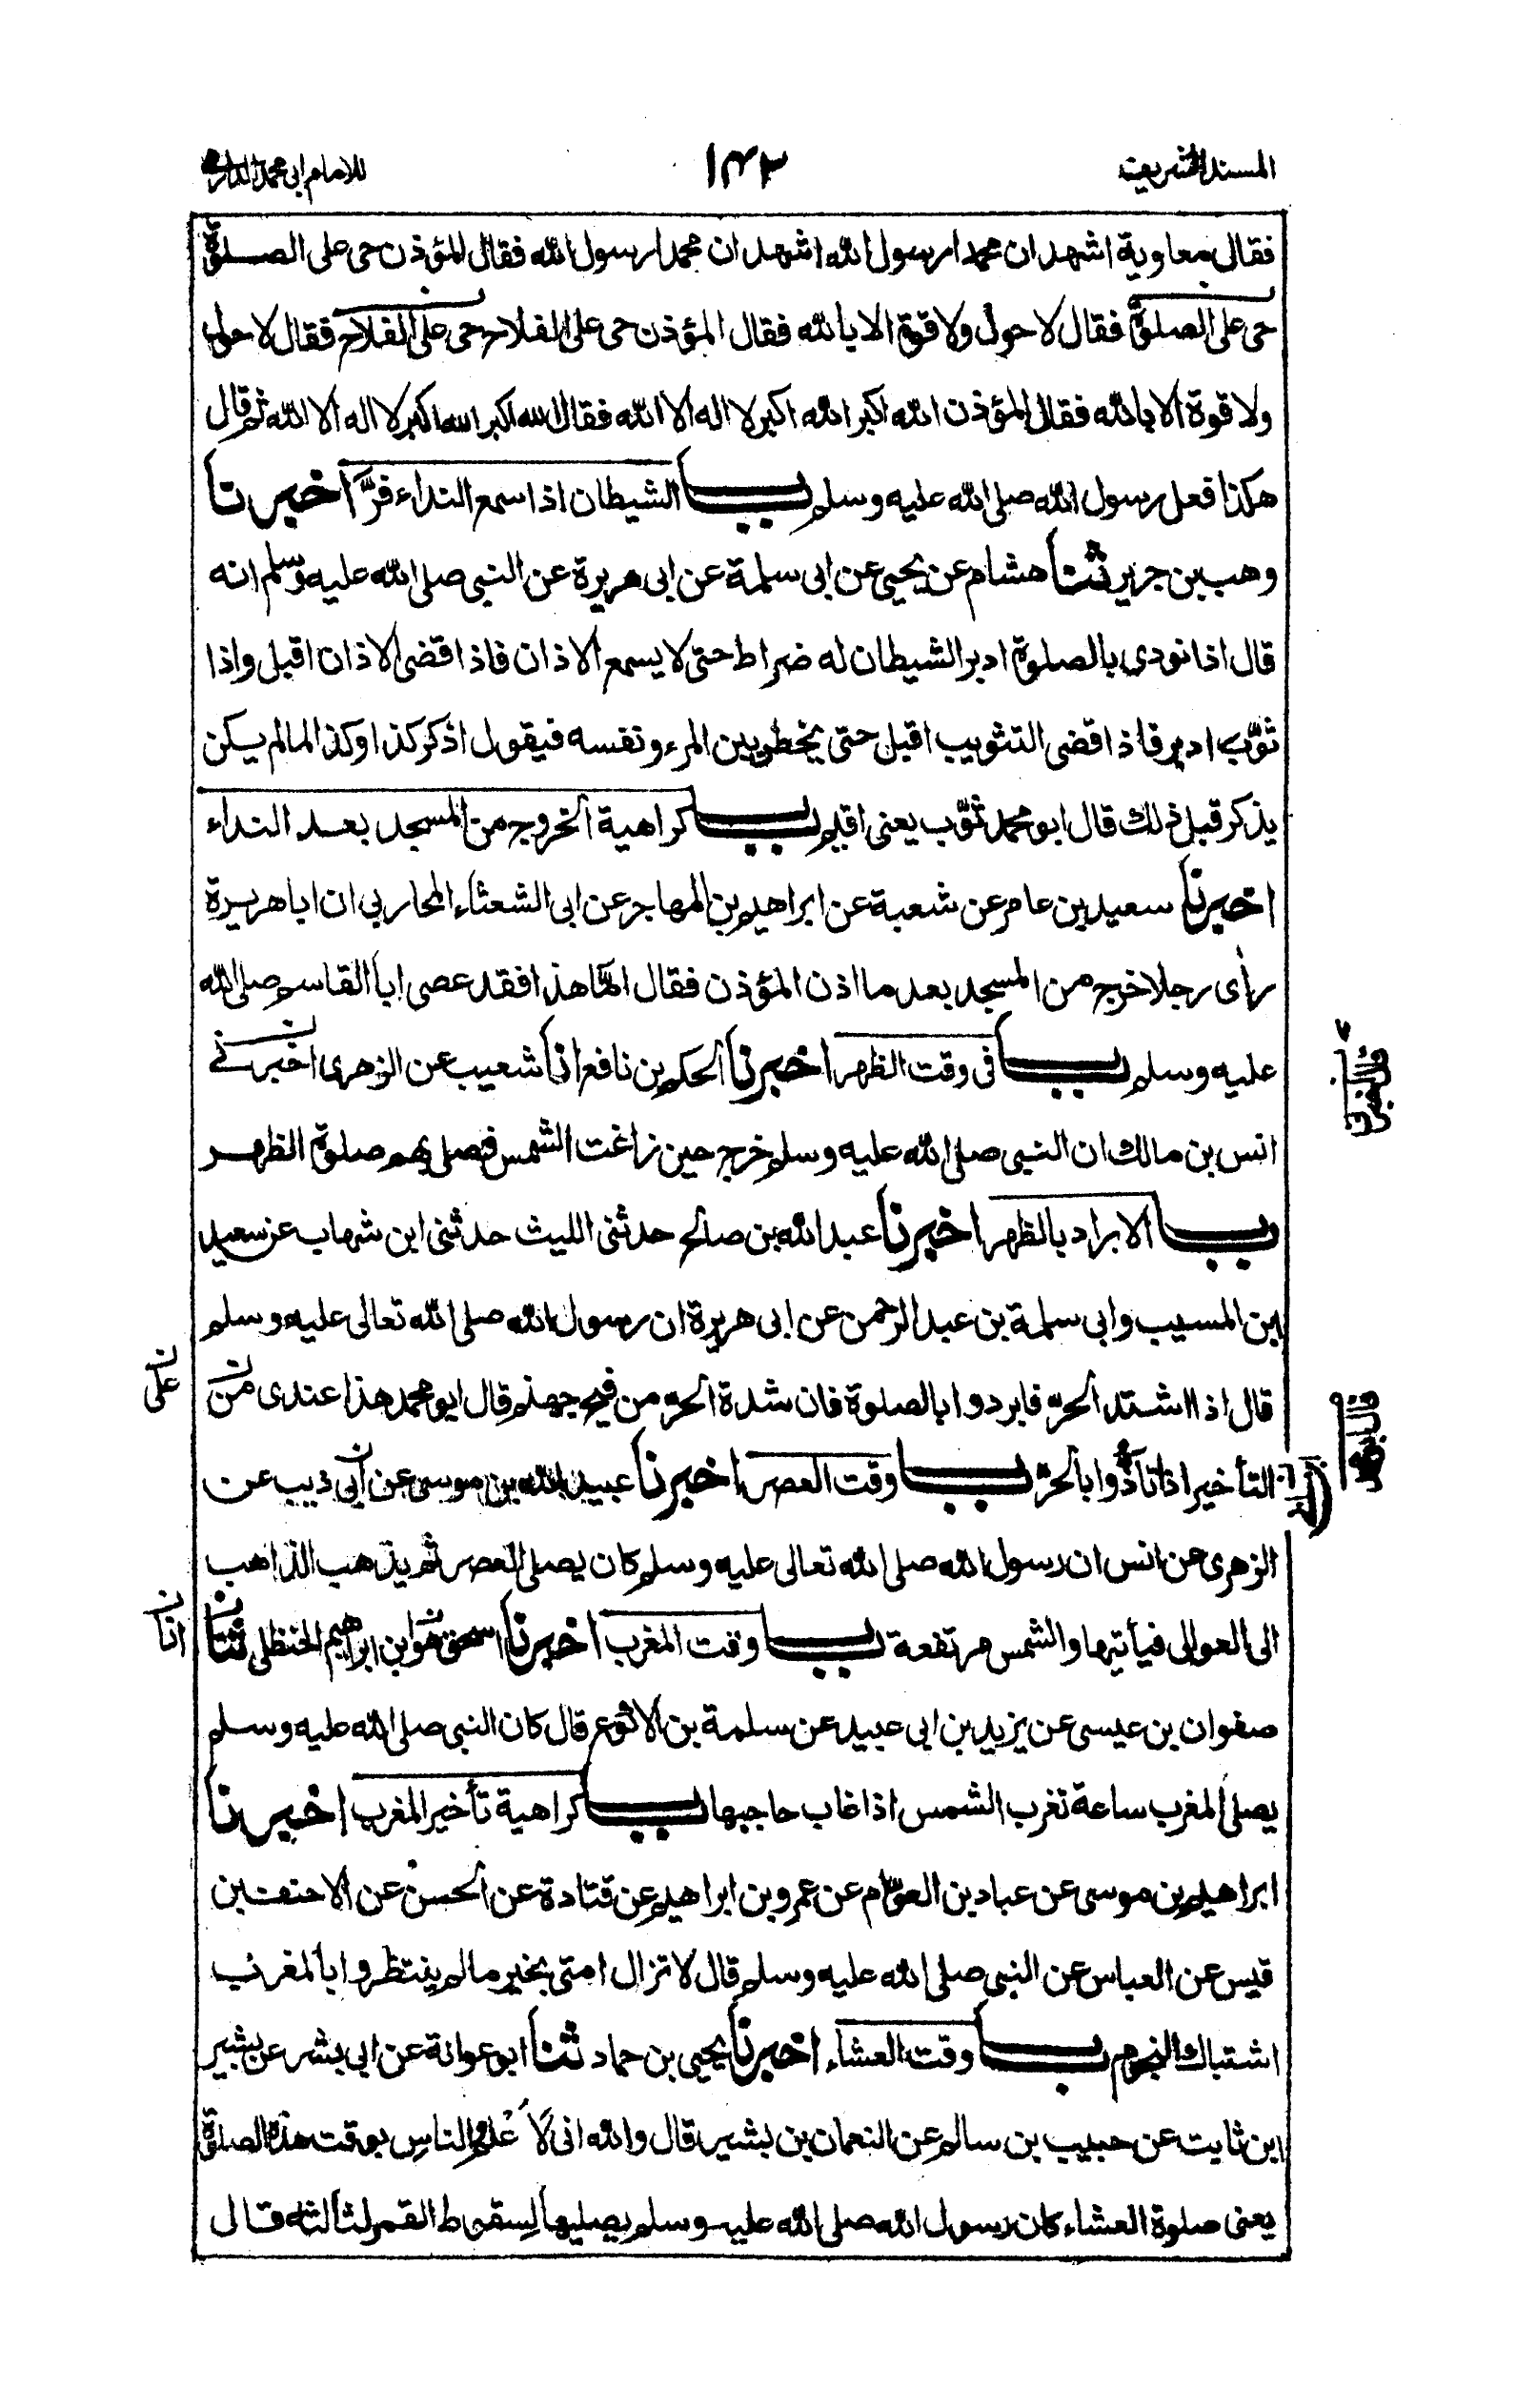 المسند الشريف ١٤٢ للامام ابى محمد الدارمى
فقال معاوية اشهد ان محمدا رسول الله اشهد ان محمدا رسول الله فقال المؤذن حى على الصلوة
حى على الصلوة فقال لا حول ولا قوة الا بالله فقال المؤذن حى على الفلاح حى على الفلاح فقال لا حول
ولا قوة الا بالله فقال المؤذن الله اكبر الله اكبر لا اله الا الله فقال الله اكبر الله اكبر لا اله الا الله ثم قال
هكذا فعل رسول الله صلى الله عليه وسلم باب الشيطان اذا سمع النداء فرّ اخبرنا
وهب بن جرير ثنا هشام عن يحيى عن ابى سلمة عن ابى هريرة عن النبى صلى الله عليه وسلم انه
قال اذا نودى بالصلوة ادبر الشيطان له ضراط حتى لا يسمع الاذان فاذا قضى الاذان اقبل واذا
ثوّب ادبر فاذا قضى التثويب اقبل حتى يخطر بين المرء ونفسه فيقول اذكر كذا وكذا لما لم يكن
يذكر قبل ذلك قال ابو محمد ثوّب يعنى اقيم باب كراهية الخروج من المسجد بعد النداء
اخبرنا سعيد بن عامر عن شعبة عن ابراهيم بن المهاجر عن ابى الشعثاء المحاربي ان ابا هريرة
رأى رجلا خرج من المسجد بعد ما اذن المؤذن فقال امّا هذا فقد عصى ابا القاسم صلى الله
عليه وسلم باب فى وقت الظهر اخبرنا الحكم بن نافع انا شعيب عن الزهرى اخبرنے
انس بن مالك ان النبى صلى الله عليه وسلم خرج حين زاغت الشمس فصلى بهم صلوة الظهر
باب الابراد بالظهر اخبرنا عبد الله بن صالح حدثنى الليث حدثنى ابن شهاب عن سعيد
بن المسيب وابى سلمة بن عبد الرحمن عن ابى هريرة ان رسول الله صلى الله تعالى عليه وسلم
قال اذا اشتد الحرّ فابردوا بالصلوة فان شدة الحرّ من فيح جهنم قال ابو محمد هذا عندى من
على
التأخير اذا تأذّوا بالحرّ باب وقت العصر اخبرنا عبيد الله بن موسى عن ابى ذيب عن
الزهرى عن انس ان رسول الله صلى الله تعالى عليه وسلم كان يصلى العصر ثم يذهب الذاهب
الى العوالى فيأتيها والشمس مرتفعة باب وقت المغرب اخبرنا اسحق هو ابن ابراهيم الحنظلى ثنا
انا
صفوان بن عيسى عن يزيد بن ابى عبيد عن سلمة بن الاكوع قال كان النبى صلى الله عليه وسلم
يصلى المغرب ساعة تغرب الشمس اذا غاب حاجبها باب كراهية تأخير المغرب اخبرنا
ابراهيم بن موسى عن عباد بن العوّام عن عمرو بن ابراهيم عن قتادة عن الحسن عن الاحنف بن
قيس عن العباس عن النبى صلى الله عليه وسلم قال لا تزال امتى بخير ما لم ينتظروا بالمغرب
اشتباك النجوم باب وقت العشاء اخبرنا يحيى بن حماد ثنا ابو عوانة عن ابى بشر عن بشير
ابن ثابت عن حبيب بن سالم عن النعمان بن بشير قال والله انى لَاَعْلَمُ الناسِ بوقت هذه الصلوة
يعنى صلوة العشاء كان رسول الله صلى الله عليه وسلم يصليها لسقوط القمر لثالثة قال